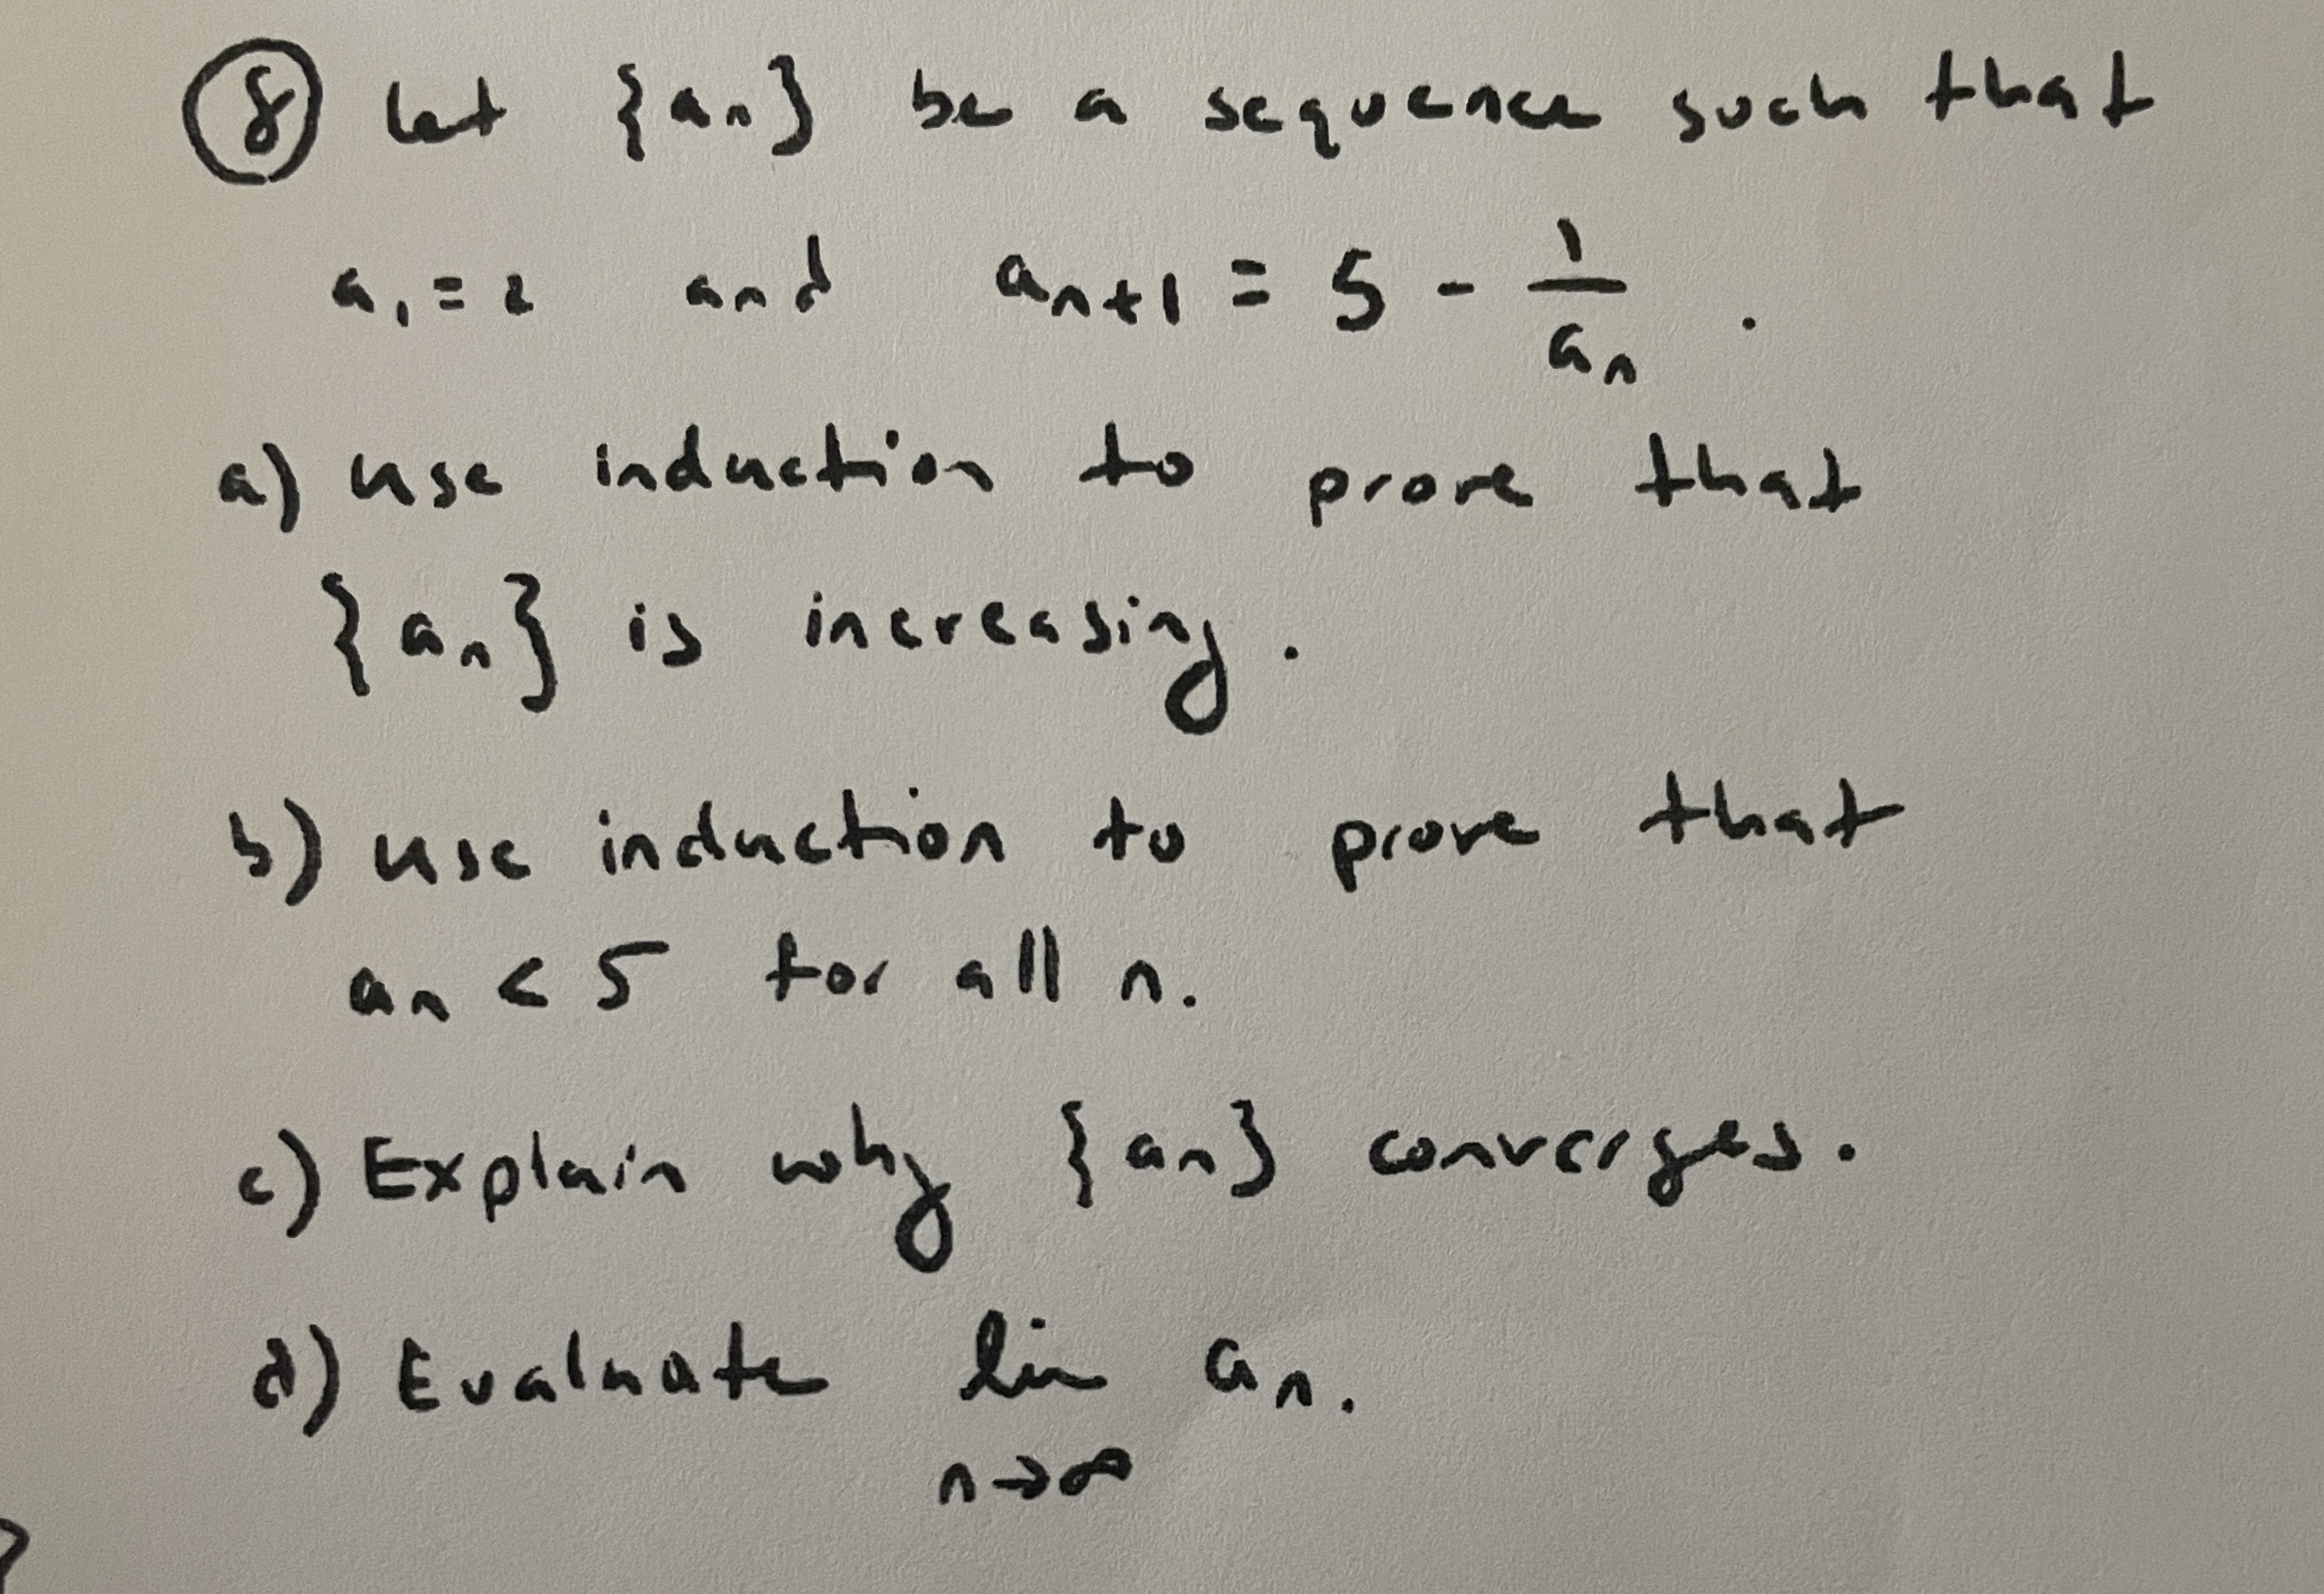 ⑧ Let {aₙ} be a sequence such that
a₁ = 2 and aₙ₊₁ = 5 - 1/aₙ .
a) use induction to prove that
{aₙ} is increasing.
b) use induction to prove that
aₙ < 5 for all n.
c) Explain why {aₙ} converges.
d) Evaluate lim aₙ.
n→∞